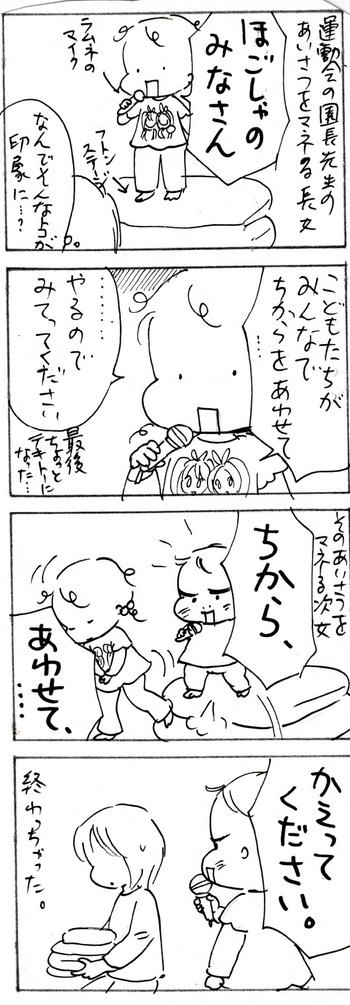 運動会の園長先生の
あいさつをマネる長女
ほごしゃの
みなさん
ラムネの
マイク
フトン
ステージ
なんでそんな点が
印象に…?
こどもたちが
みんなで
ちからをあわせて
………
………
やるので
みてってください
最後
ちょっと
テキトーに
なった…
そのあいさつを
マネる次女
ちから、
あわせて、
……
かえって
ください。
終わっちゃった。